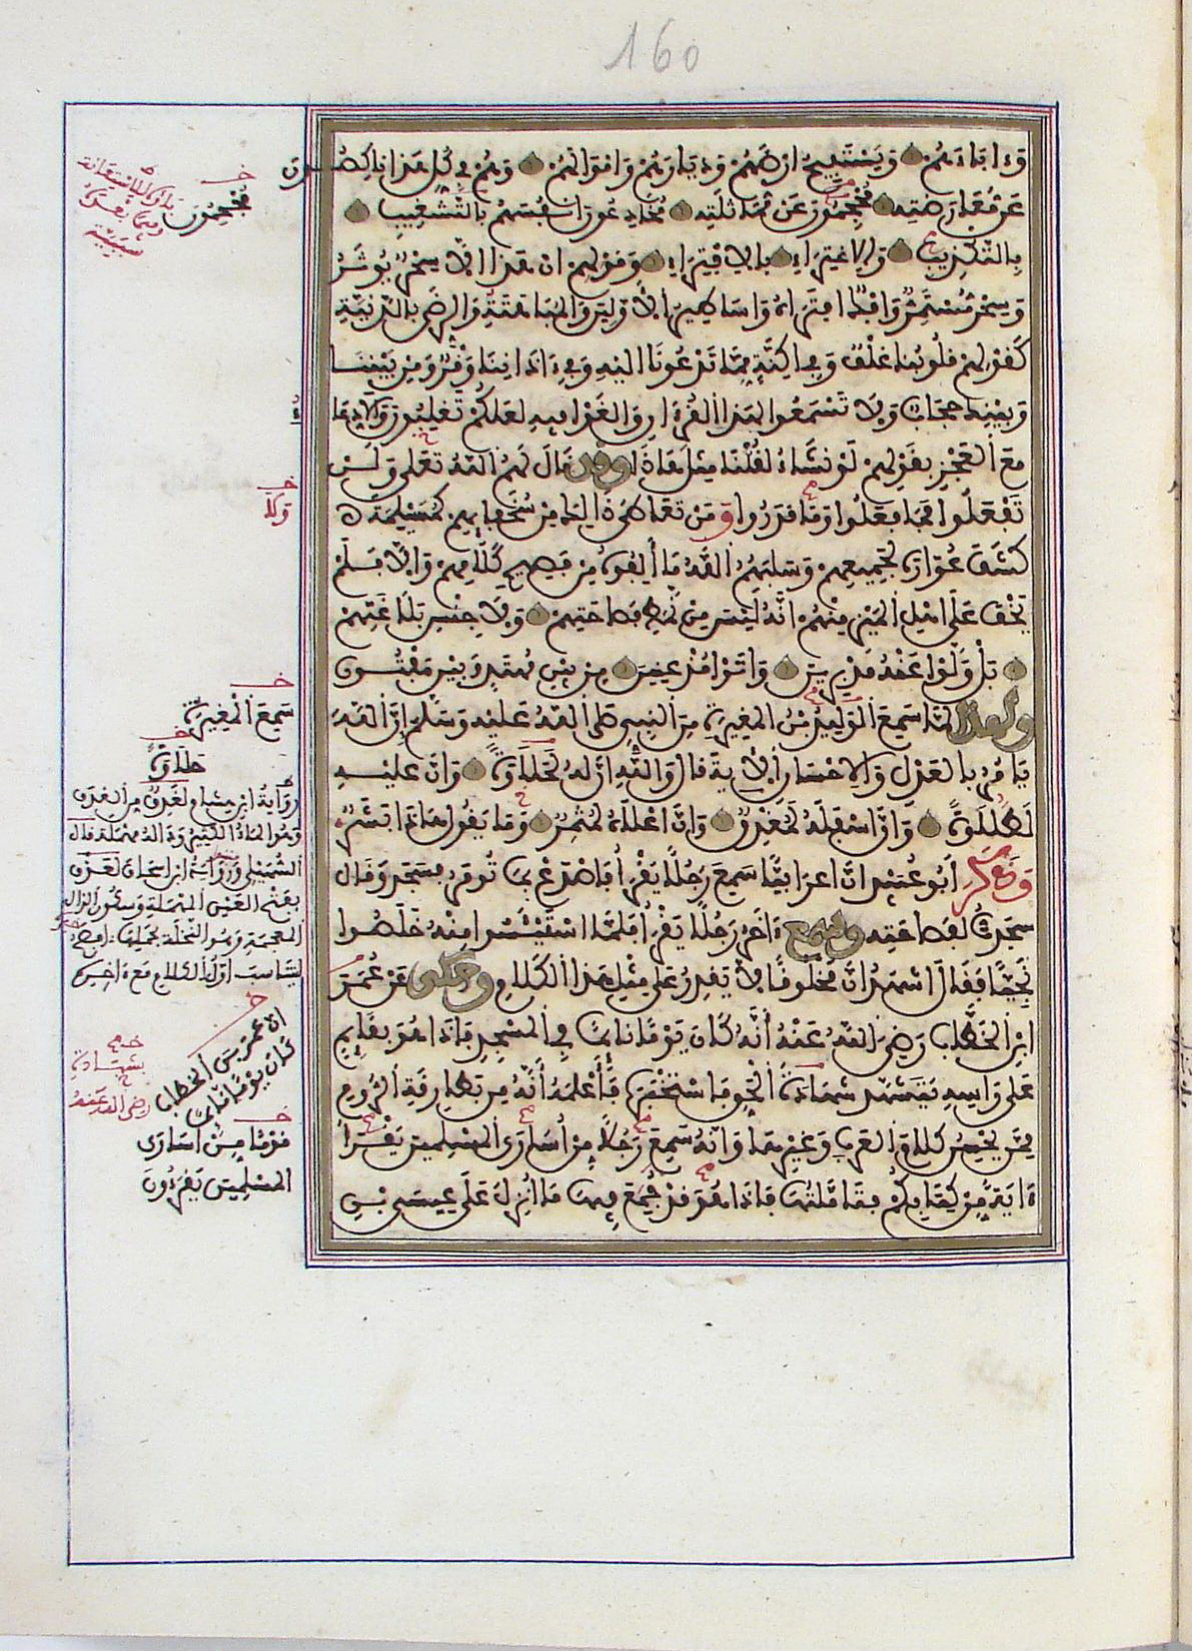 160
وَءَابَاءَهُمْ وَيَسْتَبِيحُ أَرْضَهُمْ وَدِيَارَهُمْ وَأَمْوَالَهُمْ وَهُمْ فِي كُلِّ هَذَا نَاكِصُونَ
عَنْ مُعَارَضَتِهِ مُحْجِمُونَ عَنْ مُمَاثَلَتِهِ مُخَادِعُونَ أَنْفُسَهُمْ بِالتَّشْغِيبِ
بِالتَّكْذِيبِ وَالِاغْتِرَاءِ بِالِافْتِرَاءِ وَقَوْلِهِمْ إِنْ هَذَا إِلَّا سِحْرٌ يُوثَرُ
وَسِحْرٌ مُسْتَمِرٌّ وَإِفْكٌ افْتَرَاهُ وَأَسَاطِيرُ الْأَوَّلِينَ وَالْمُبَاهَتَةِ وَالرِّضَى بِالدَّنِيَّةِ
كَقَوْلِهِمْ قُلُوبُنَا غُلْفٌ وَفِي أَكِنَّةٍ مِمَّا تَدْعُونَا إِلَيْهِ وَفِي ءَاذَانِنَا وَقْرٌ وَمِنْ بَيْنِنَا
وَبَيْنِكَ حِجَابٌ وَلَا تَسْمَعُوا لِهَذَا الْقُرْءَانِ وَالْغَوْا فِيهِ لَعَلَّكُمْ تَغْلِبُونَ وَالِادِّعَاءِ
مَعَ الْعَجْزِ بِقَوْلِهِمْ لَوْ نَشَاءُ لَقُلْنَا مِثْلَ هَاذَا وَقَدْ قَالَ لَهُمُ اللَّهُ تَعَلَى وَلَنْ
تَفْعَلُوا فَمَا فَعَلُوا وَمَا قَدَرُوا وَمَنْ تَعَاطَى ذَالِكَ مِنْ سُخَفَائِهِمْ كَمُسَيْلِمَةَ
كُشِفَ عُوَارُهُ لِجَمِيعِهِمْ وَسَلَبَهُمُ اللَّهُ مَا أَلِفُوهُ مِنْ فَصِيحِ كَلَامِهِمْ وَإِلَّا فَلَمْ
يَخْفَ عَلَى أَهْلِ الْمَيْزِ مِنْهُمْ أَنَّهُ لَيْسَ مِنْ نَمَطِ فَصَاحَتِهِمْ وَلَا جِنْسِ بَلَاغَتِهِمْ
بَلْ وَلَّوْا عَنْهُ مُدْبِرِينَ وَأَتَوْا مُذْعِنِينَ مِنْ بَيْنِ مُهْتَدٍ وَبَيْنَ مَفْتُونٍ
وَلِهَذَا لَمَّا سَمِعَ الْوَلِيدُ بْنُ الْمُغِيرَةِ مِنَ النَّبِيِّ صَلَّى اللَّهُ عَلَيْهِ وَسَلَّمَ إِنَّ اللَّهَ
يَأْمُرُ بِالْعَدْلِ وَالْإِحْسَانِ الْآيَةَ قَالَ وَاللَّهِ إِنَّ لَهُ لَحَلَاوَةً وَإِنَّ عَلَيْهِ
لَطَلَاوَةً وَإِنَّ أَسْفَلَهُ لَمُغْدِقٌ وَإِنَّ أَعْلَاهُ لَمُثْمِرٌ وَمَا يَقُولُ هَاذَا بَشَرٌ
وَذَكَرَ أَبُو عُبَيْدٍ أَنَّ أَعْرَابِيًّا سَمِعَ رَجُلًا يَقْرَأُ فَاصْدَعْ بِمَا تُومَرُ فَسَجَدَ وَقَالَ
سَجَدْتُ لِفَصَاحَتِهِ وَسَمِعَ ءَاخَرُ رَجُلًا يَقْرَأُ فَلَمَّا اسْتَيْئَسُوا مِنْهُ خَلَصُوا
نَجِيًّا فَقَالَ أَشْهَدُ أَنَّ مَخْلُوقًا لَا يَقْدِرُ عَلَى مِثْلِ هَذَا الْكَلَامِ وَحُكِيَ عَنْ عُمَرَ
ابْنِ الْخَطَّابِ رَضِيَ اللَّهُ عَنْهُ أَنَّهُ كَانَ يَوْمًا نَائِمًا فِي الْمَسْجِدِ فَإِذَا هُوَ بِقَائِمٍ
عَلَى رَأْسِهِ يَتَشَهَّدُ شَهَادَةَ الْحَقِّ فَاسْتَخْبَرَهُ فَأَعْلَمَهُ أَنَّهُ مِنْ بَطَارِقَةِ الرُّومِ
مِمَّنْ يُحْسِنُ كَلَامَ الْعَرَبِ وَغَيْرِهَا وَأَنَّهُ سَمِعَ رَجُلًا مِنْ أُسَارَى الْمُسْلِمِينَ يَقْرَأُ
ءَايَةً مِنْ كِتَابِكُمْ فَتَأَمَّلْتُهَا فَإِذَا هُوَ قَدْ جُمِعَ فِيهَا مَا أُنْزِلَ عَلَى عِيسَى بْنِ
خ
مُحْجِمُونَ
خ
وَلَا
خ
سَمِعَ الْمُغِيرَةِ
حَلَاوَةً
رِوَايَةُ ابْنِ هِشَامٍ لَغَدِقٌ مِنَ الْغَدَقِ
وَهُوَ الْمَاءُ الْكَثِيرُ
السُّهَيْلِي وَرِوَايَةُ ابْنِ إِسْحَاقَ لَعَذْقٌ
بِفَتْحِ الْعَيْنِ الْمُهْمَلَةِ وَسُكُونِ الذَّالِ
الْمُعْجَمَةِ وَهُوَ النَّخْلَةُ
أَوَّلُ الْكَلَامِ مَعَ ءَاخِرِهِ
خ
أَنَّ عُمَرَ بْنَ الْخَطَّابِ
كَانَ يَوْمًا نَائِمًا
بِشَهَادَةِ
رضي الله عنه
خ
قَوْمًا مِنْ أُسَارَى
الْمُسْلِمِينَ يَقْرَءُونَ